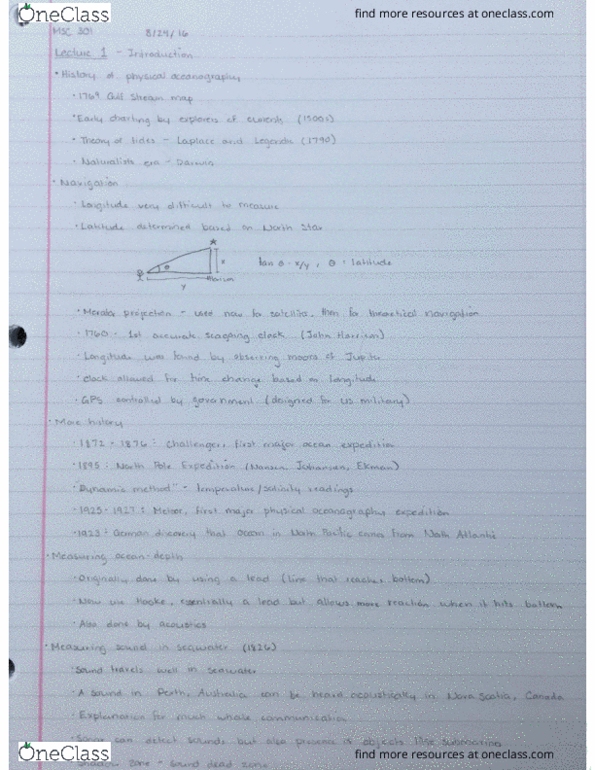 OneClass
find more resources at oneclass.com
MSC 301 8/24/16
Lecture 1 - Introduction
• History of physical oceanography
• 1769 Gulf Stream map
• Early charting by explorers of currents (1500s)
• Theory of tides - Laplace and Legendre (1790)
• Naturalists era - Darwin
• Navigation
• Longitude very difficult to measure
• Latitude determined based on North Star
θ x tan θ = x/y, θ = latitude
horizon
y
• Mercator projection - used now for satellites, then for theoretical navigation
• 1760 - 1st accurate seagoing clock (John Harrison)
• Longitude was found by observing moons of Jupiter
• Clock allowed for time change based on longitude
• GPS controlled by government (designed for US military)
• More history
• 1872 - 1876: Challenger, first major ocean expedition
• 1895: North Pole Expedition (Nansen, Johansen, Ekman)
• "Dynamic method" - temperature/salinity readings
• 1925-1927: Meteor, first major physical oceanography expedition
• 1923: German discovery that ocean in North Pacific comes from North Atlantic
• Measuring ocean depth
• Originally done by using a lead (line that reaches bottom)
• Now use Hooke, essentially a lead but allows more reaction when it hits bottom
• Also done by acoustics
• Measuring sound in seawater (1826)
• Sound travels well in seawater
• A sound in Perth, Australia can be heard acoustically in Nova Scotia, Canada
• Explanation for much whale communication
• Sonar can detect sounds but also presence of objects like submarines
• Shadow zone - sound dead zone
OneClass
find more resources at oneclass.com